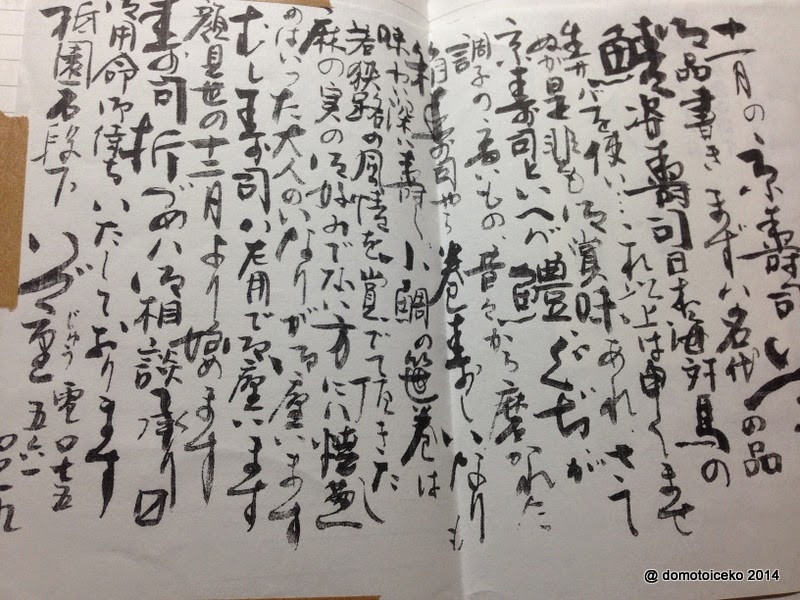 十一月の京壽司 いづ
御品書きまずハ名代の品
鯖姿壽司日本海対馬の
生サバを使い…これ以上は申しませ
ぬが是非も御賞味あれ さて
京壽司といへば鱧 ぐぢが
調子の高いもの、昔々から磨かれた
箱壽司やら巻寿し いなりも
味わい深い寿し 小鯛の笹巻は
若狭路の風情を賞でて頂きたし
麻の実の御好みでない方にハ
のはいった大人のいなりが御座います
むし寿司ハ左用で御座います
顔見世の十二月より始めます
寿司折づめハ御相談承り日
御用命御待ちいたしております
祇園石段下 いづ重 じゅう 電〇七五 五六一 〇〇一九
@ domotoiceko 2014